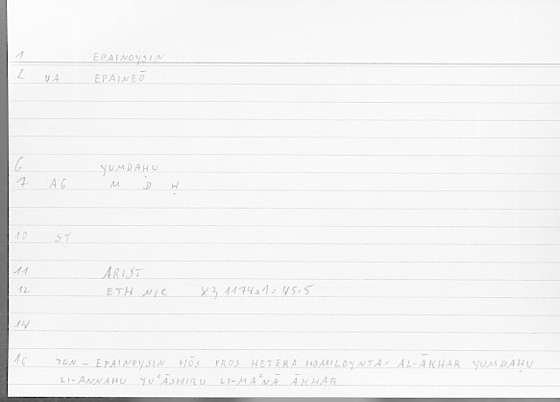 1 EPAINOYSIN
2 VA EPAINEŌ
6 YUMDAḤU
7 AG M D Ḥ
10 ST
11 ARIST
12 ETH NIC X3 1174a1, 45.5
14
16 TON – EPAINOYSIN HŌS PROS HETERA HOMILOYNTA, AL-ĀKHAR YUMDAḤU
LI-ANNAHU YUʿĀSHIRU LI-MAʿNĀ ĀKHAR